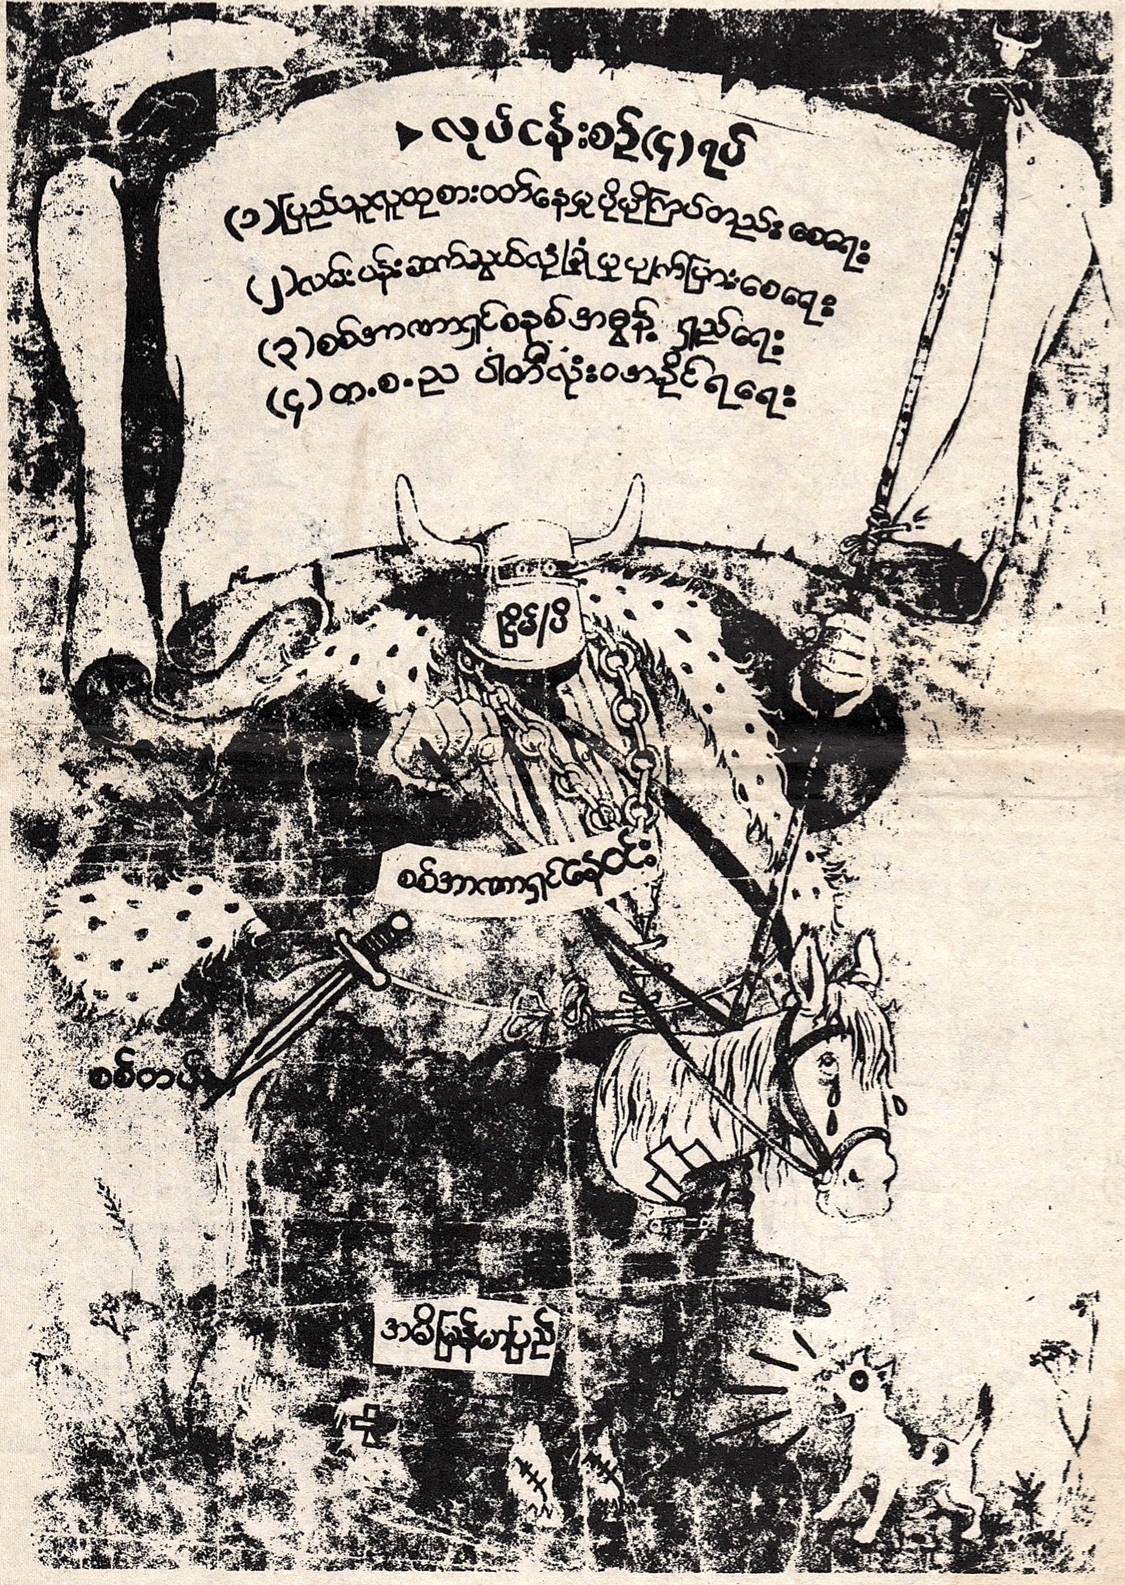 ▶ လုပ်ငန်းစဉ်(၄)ရပ်
(၁)ပြည်သူလူထုစားဝတ်နေမှုပိုမိုကြပ်တည်းစေရေး
(၂)လမ်းပန်းဆက်သွယ်လုံခြုံမှုပျက်ပြားစေရေး
(၃)စစ်အာဏာရှင်စနစ်အဓွန့် ရှည်ရေး
(၄)တ.စ.ည ပါတီလုံးဝအနိုင်ရရေး
ငြိမ်/ပိ
စစ်အာဏာရှင်နေဝင်း
စစ်တပ်
အမိမြန်မာပြည်